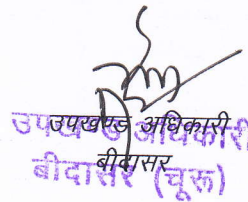 उपखण्ड अधिकारी
बीदासर
उपखण्ड अधिकारी
बीदासर (चूरू)